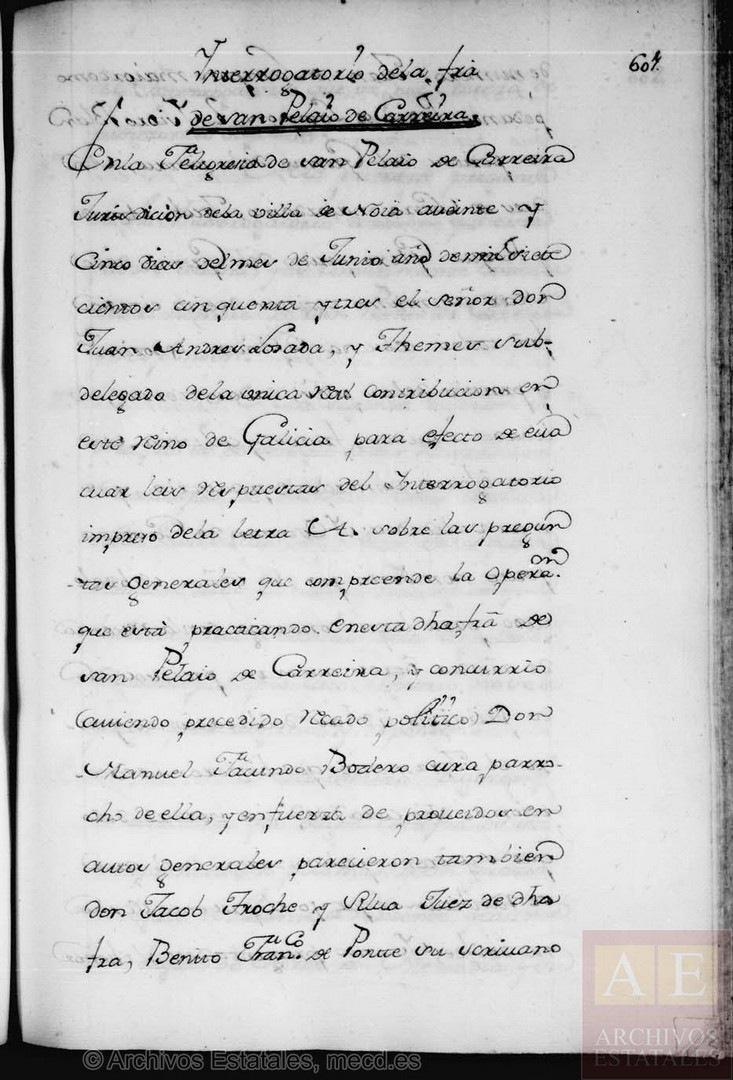 604.
Interrogatorio dela fra
de san Pelaio de Carreira
En la Feligresia de san Pelaio de Carreira
Jurisdicion dela villa de Noia a veinte y
Cinco dias del mes de Junio año de mil Siete
cientos cinquenta y tres el señor don
Juan Andres Losada, y Themes sub-
delegado dela unica Real Contribucion en
este Reino de Galicia para efecto de eva
cuar las Respuestas del Interrogatorio
impreso dela letra A. sobre las pregun
tas generales que compreende la Operaon.
que està practicando en esta dha fra de
san Pelaio de Carreira, y concurrio
(aviendo precedido Recado politico) Don
Manuel Facundo Bozero cura parro-
cho de ella, y en fuerza de proueidos en
autos generales parecieron tambien
don Jacob Froche y Silua Juez de dha
fra, Benito Franco. de Ponte su scrivano
AE
ARCHIVOS
ESTATALES
© Archivos Estatales, mecd.es